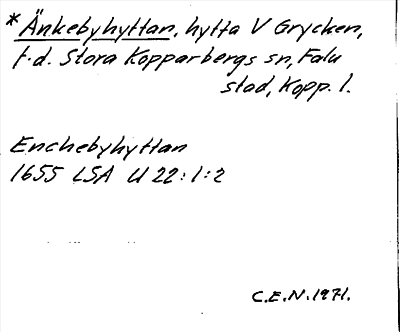 *Änkebyhyttan, hytta V Grycken,
f.d. Stora Kopparbergs sn, Falu
stad, Kopp. l.
Enchebyhyttan
1655 LSA U 22:1:2
C.E.N. 1971.